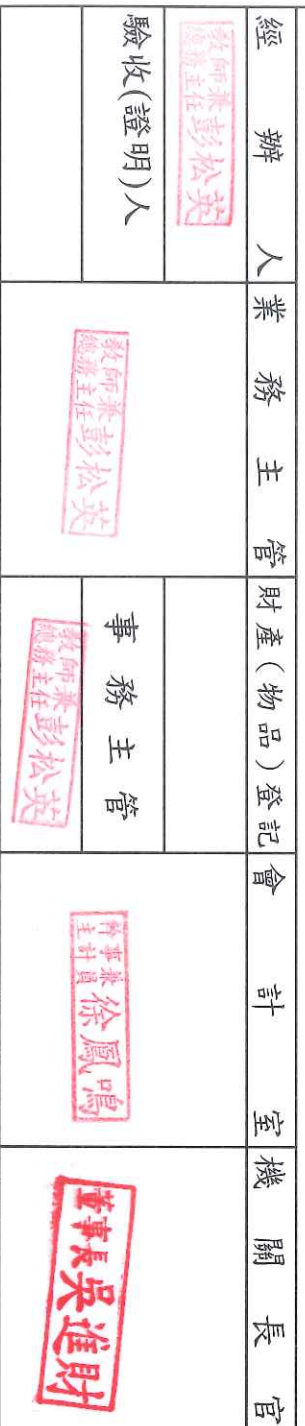 經辦人
教師兼
總務主任 彭松英
驗收(證明)人
業務主管
教師兼
總務主任 彭松英
財產(物品)登記
事務主管
教師兼
總務主任 彭松英
會計室
幹事兼
主計員 徐鳳鳴
機關長官
董事長吳進財